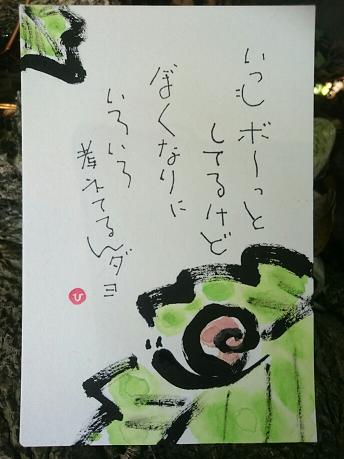 いつもボーっと
してるけど
ぼくなりに
いろいろ
考えてるんダヨ
ひ